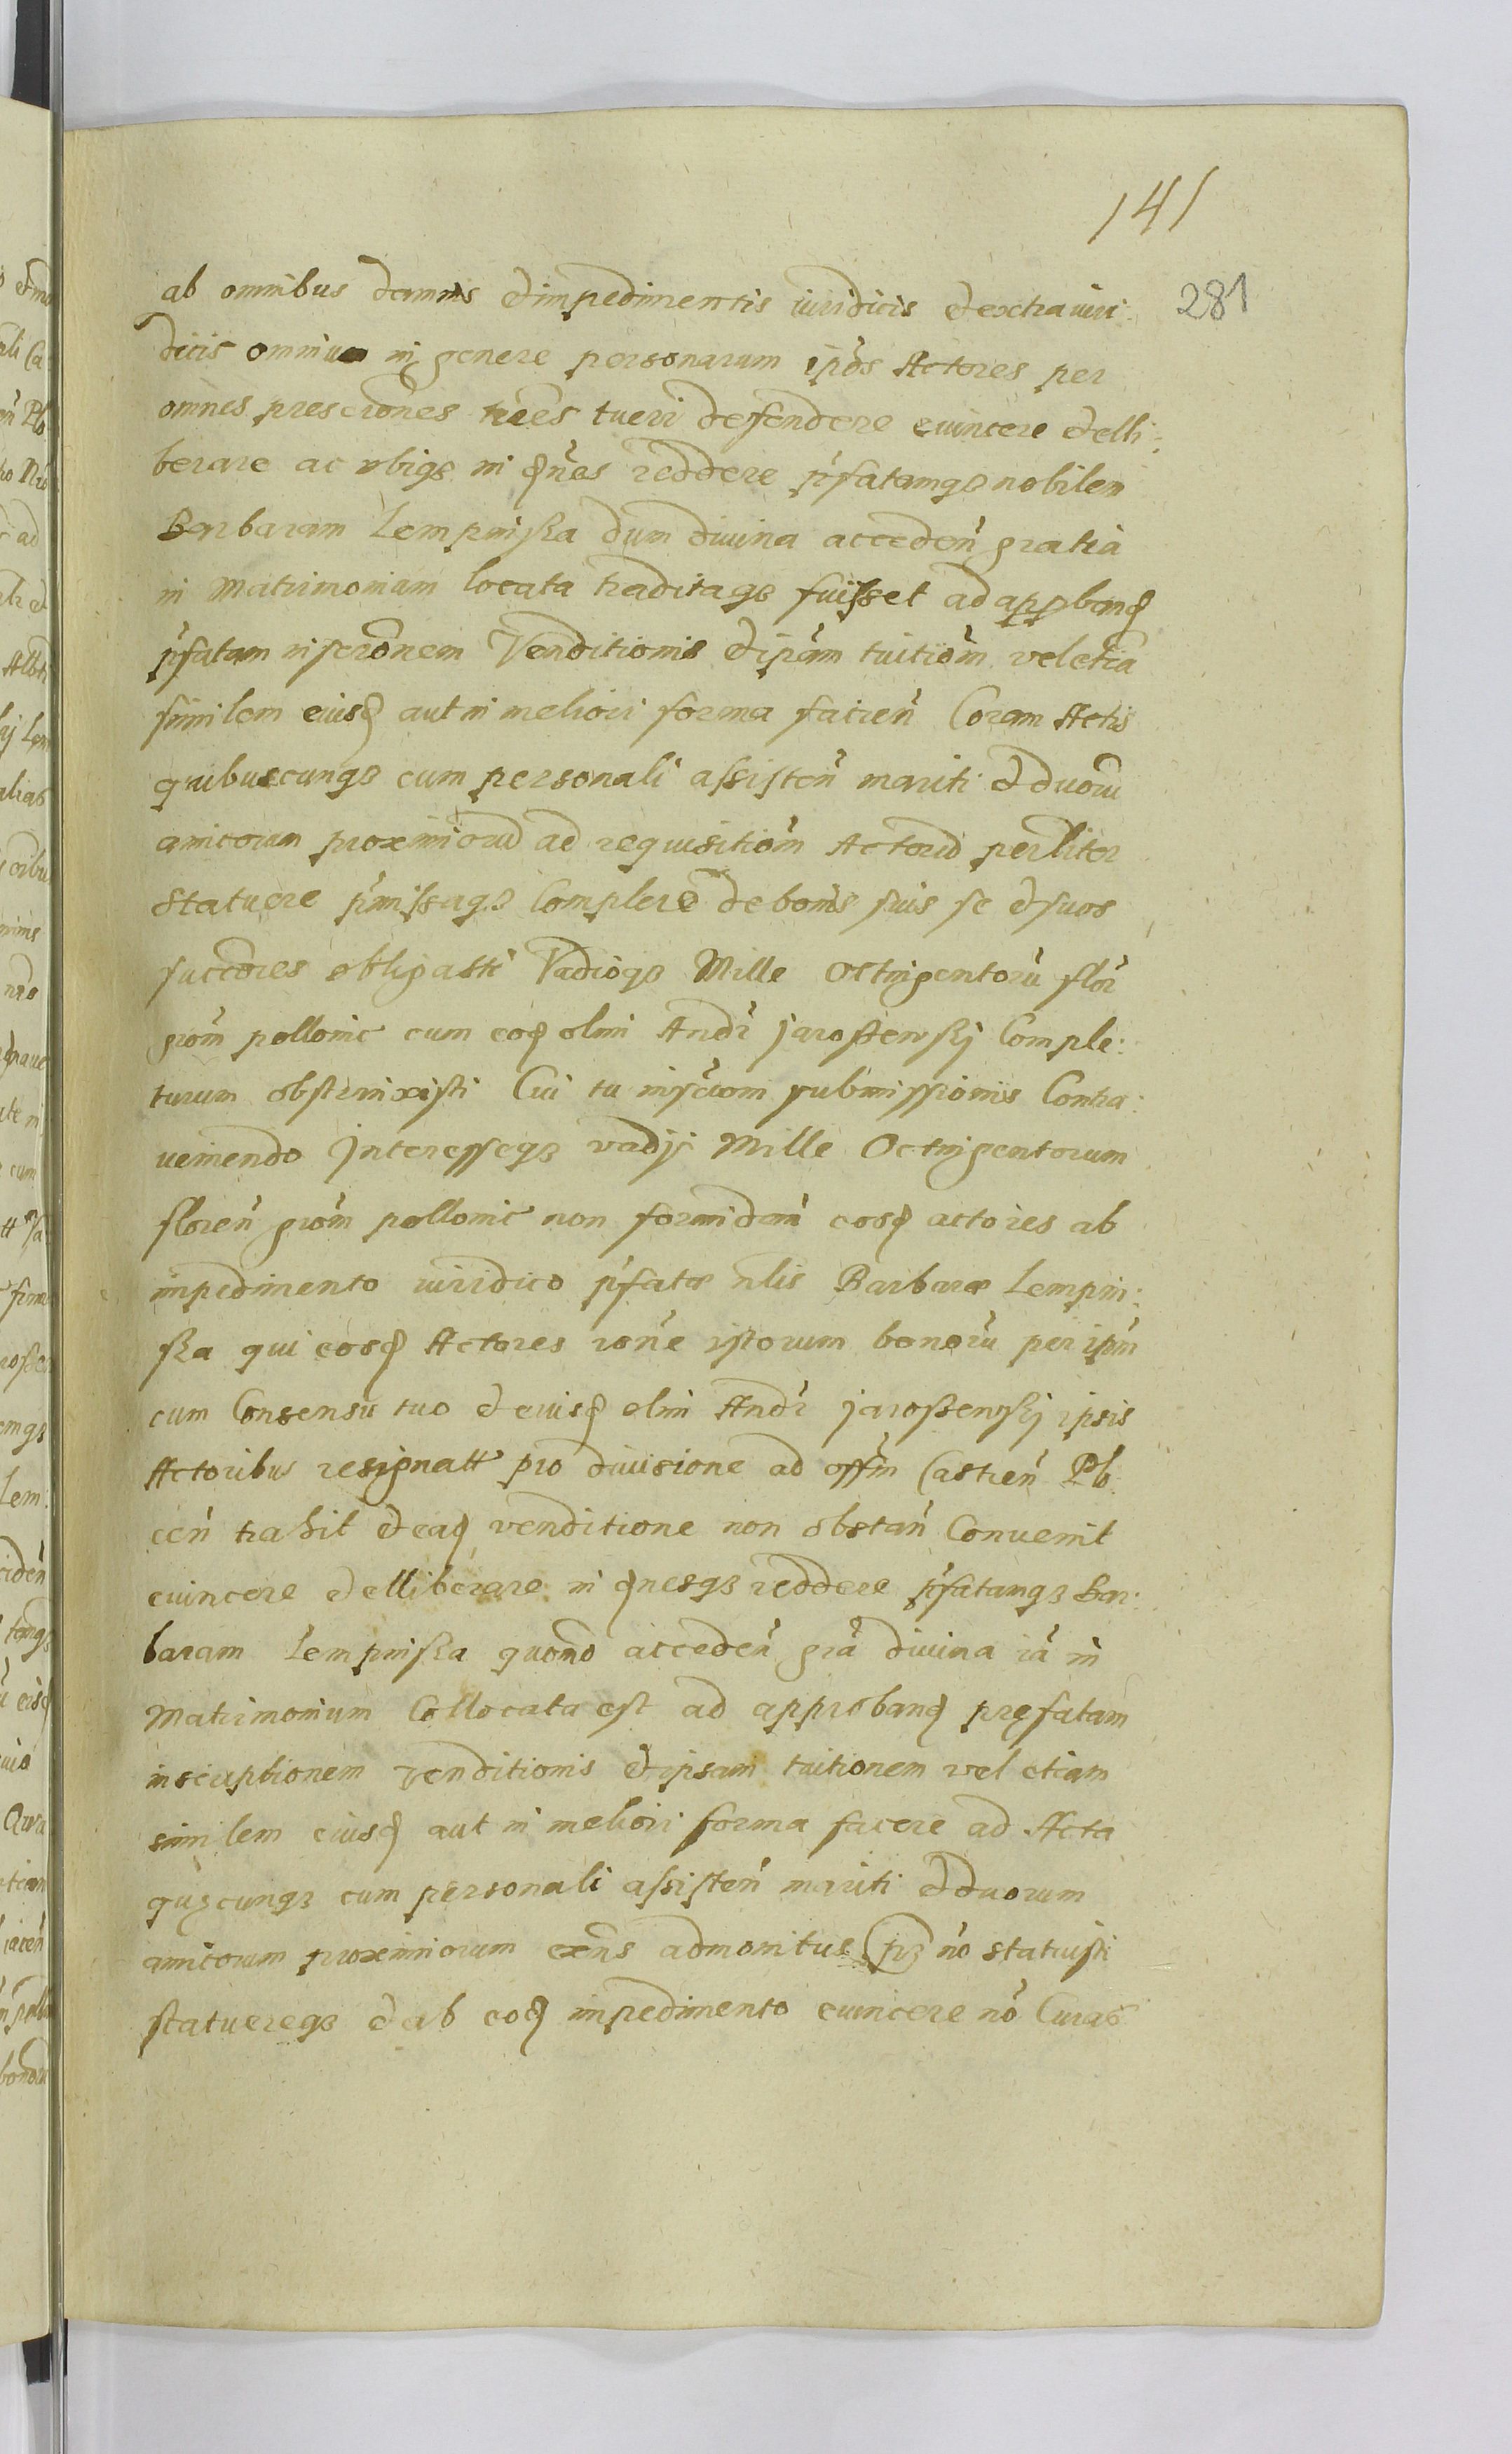 141
281
ab omnibus damnis et impedimentis iuridicis et extraiuri:
dicis omnium in genere personarum ipōs Actores per
omnes prescrōnes trēes tueri defendere euincere et elli:
berare ac vbiqȝ in qnēs reddere pfatamqȝ nobilem
Barbaram Lempinska dum diuina acceden̄ gratia
in Matrimonium locata traditaqȝ fuisset ad approband
pfatam inscrōnem Venditionis et ipām tuitiōm vel etiā
similem eiusd aut in meliori forma facien̄ Coram Actis
quibuscunqȝ cum personali assisten̄ mariti et duorū
amicorum proximiorū ad requisitiōm Actorū perliter
statuere pmissaqȝ Complere de bonis suis se et suos
succōres obligasti Vadioqȝ Mille Octingentorū flōr
grōm pollonic cum eod olim Andr̄ Jaroszewskj Comple:
turum obstrinxisti Cui tu inscrōm submissionis Contra:
ueniendo Interesseqȝ vadij Mille Octingentorum
floren̄ grōm pollonic non formidan̄ eosd actores ab
impedimento iuridico pfatæ nlis Barbaræ Lempin:
ska qui eosd Actores rōne istorum bonorū per ipm̄
cum Consensu tuo et eiusd olim Andr̄ Jaroszewskj ipsis
Actoribus resignatt pro diuisione ad offm̄ Castren̄ Pb
cen̄ trahit et ead venditione non obstan̄ Conuenit
euincere et elliberare in qnesqȝ reddere pfatamqȝ Bar:
baram Lempinska quonō acceden̄ grā diuina iā in
Matrimonium Collocata est ad approband pręfatam
inscriptionem venditionis et ipsam tuitionem vel etiam
similem eiusd aut in meliori forma facere ad Acta
quęcunqȝ cum personali assisten̄ mariti et duorum
amicorum proximiorum exn̄s admonitus prȝ nō statuisti
statuereqȝ et ab eod impedimento euincere nō Curas